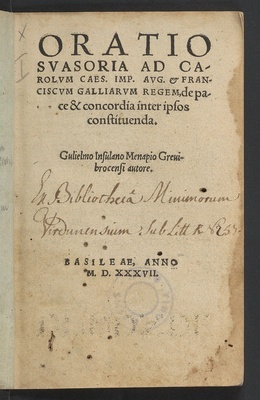 ORATIO
SVASORIA AD CA-
ROLVM CAES. IMP. AVG. & FRAN-
CISCVM GALLIARVM REGEM, de pa-
ce & concordia inter ipsos
constituenda.
Gulielmo Insulano Menapio Greui-
brocensi autore.
Ex Bibliotheca Minimorum
Virdunensium Sub Litt R
BASILEAE, ANNO
M. D. XXXVII.